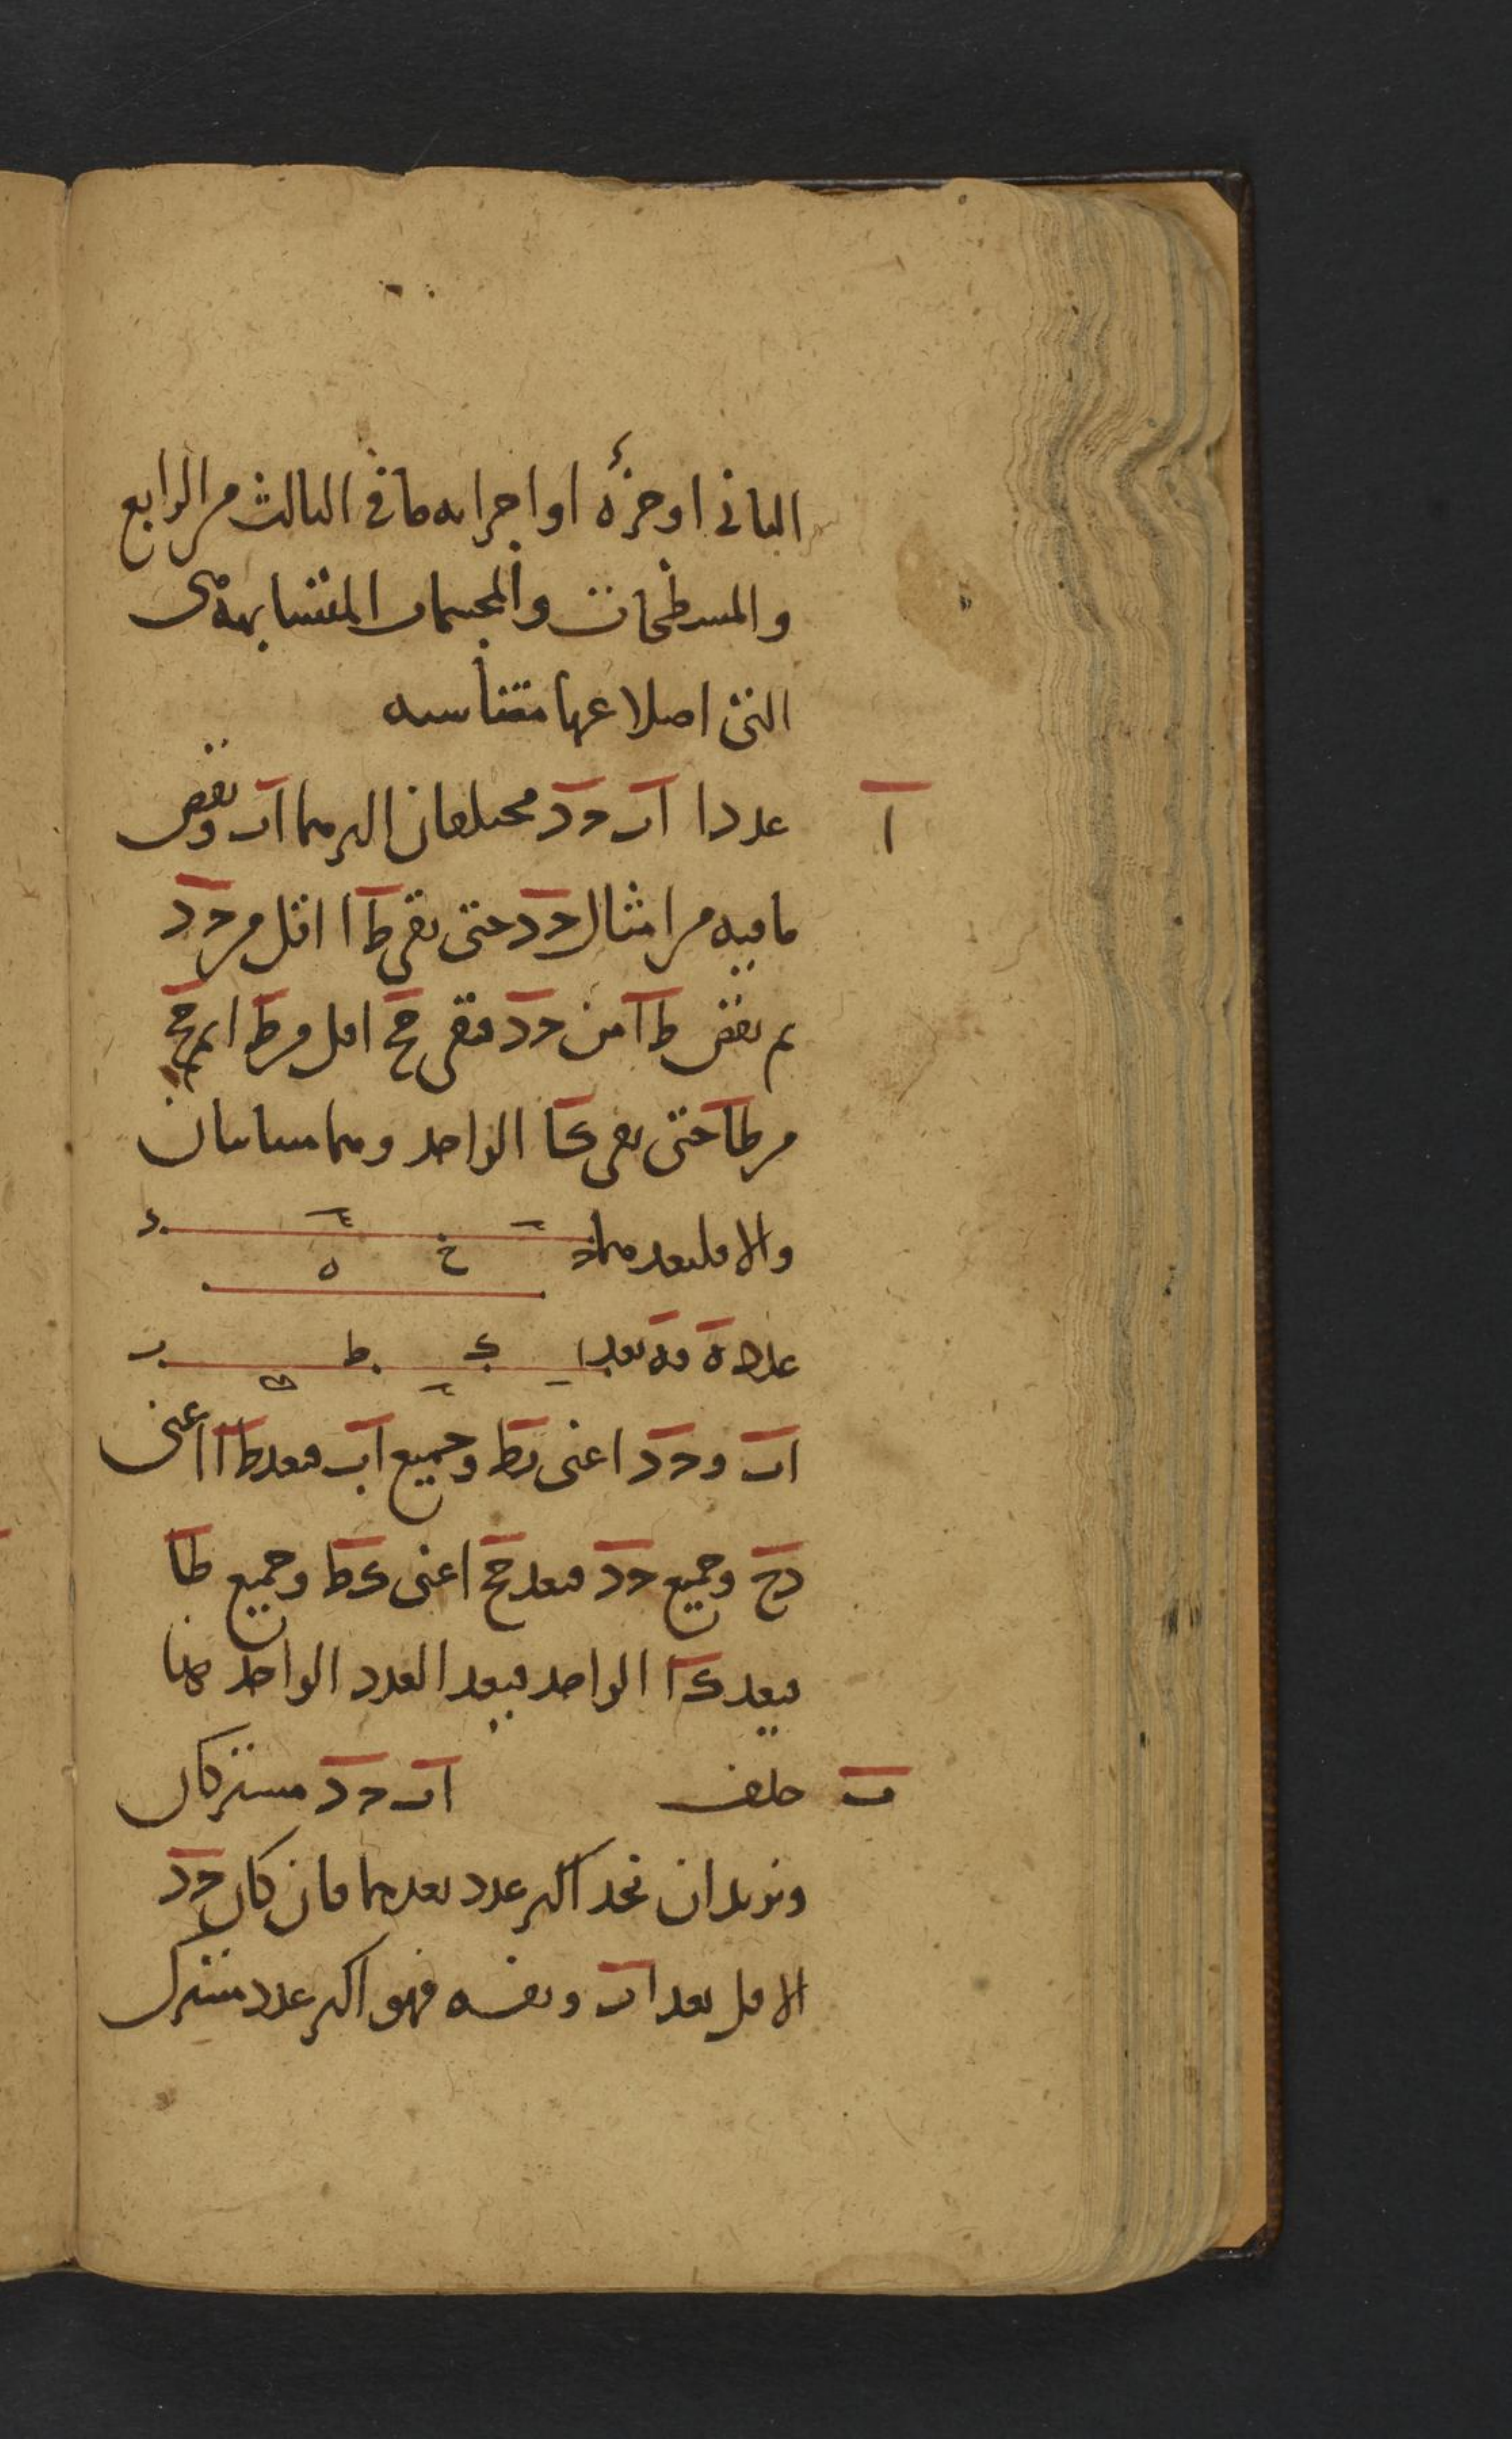 الثانى او جزؤه او اجزاءه ما فى الثالث من الرابع
والمسطحات والمجسمات المتشابهة هى
التى اضلاعها متناسبه
ا عددا اب حد مختلفان اكبرهما اب ونقص
ما فيه من امثال حد حتى بقى طا اقل من حد
ثم نقص طا من حد فبقى حح اقل من طا ثم حح
من طا حتى بقى كا الواحد وهما متباينان
والا فليعدهما ح د
خ ه
عدد ه فه يعد ا ك ط ب
اب وحد اعنى بط وجميع اب فيعد طا اعنى
دح وجميع حد فيعد حح اعنى كط وجميع طا
فيعد كا الواحد فيعد العدد الواحد هذا
ب خلف اب حد مشتركان
ونريد ان نجد اكبر عدد يعدهما فان كان حد
الاقل يعد اب ونفسه فهو اكبر عدد مشترك